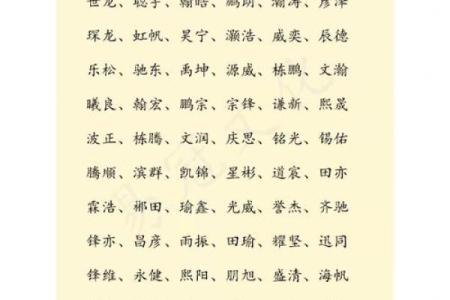 世龙、聪宇、翰皓、鹏朗、瀚涛、彦泽
琛龙、虹帆、昊宁、灏浩、威奕、辰德
乐松、驰东、禹坤、源威、栋鹏、文瀚
曦良、翰宏、鹏宗、宗锋、谦新、熙晟
波正、栋腾、文润、庆思、铭光、锡佑
腾顺、滨群、凯锦、星彬、道宸、田亦
霖浩、郴田、瑜鑫、光威、誉杰、齐驰
锋亦、昌彦、雨振、田瑜、耀坚、迅同
锋维、永健、熙阳、朋旭、盛清、海帆